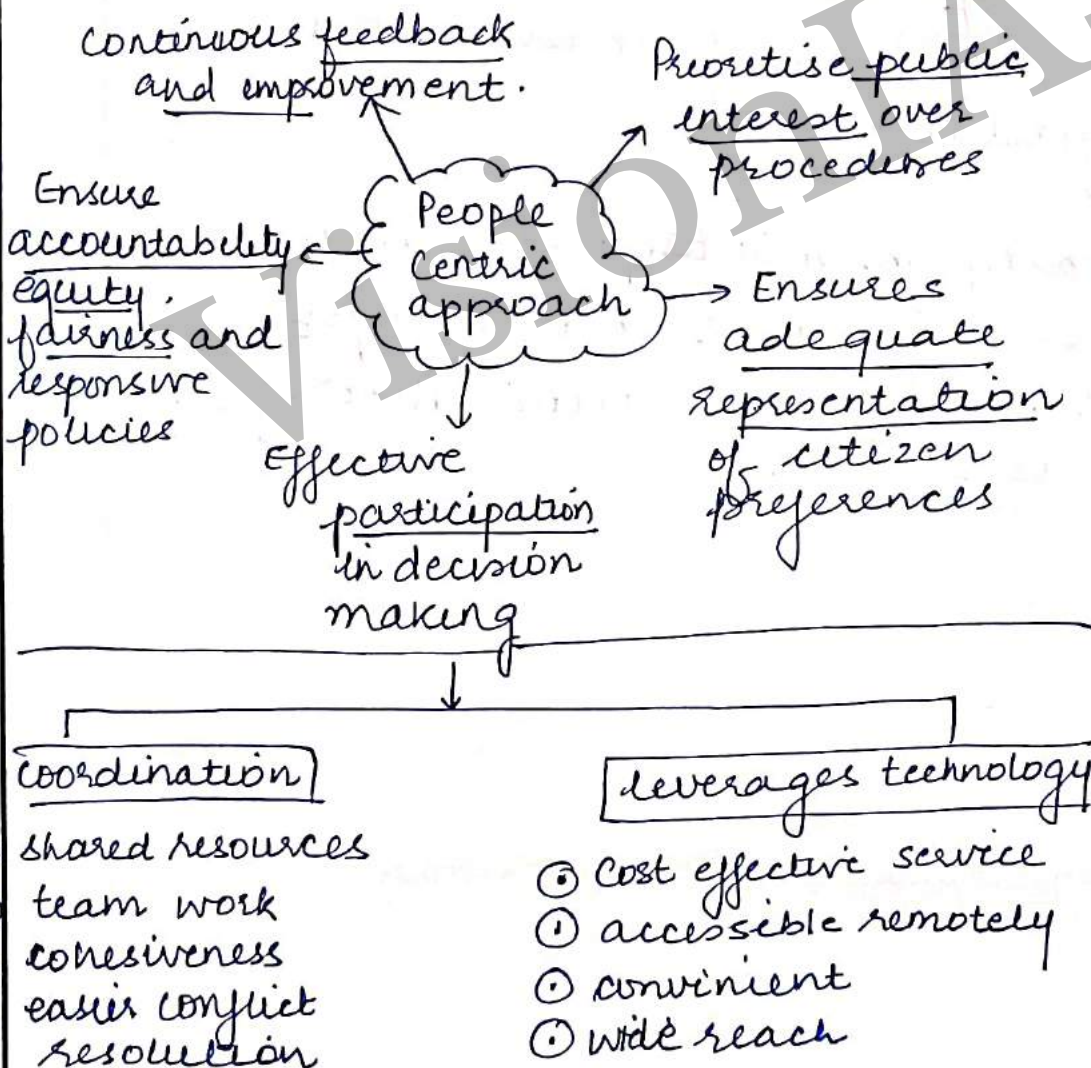 continuous feedback
and improvement.
Prioretise public
interest over
procedures
Ensure
accountability
equity,
fairness and
responsive
policies
People
Centric
approach
Ensures
adequate
representation
of citizen
preferences
Effective
participation
in decision
making
coordination
shared resources
team work
cohesiveness
easier conflict
resolution
leverages technology
cost effective service
accessible remotely
convinient
wide reach
VisionIA